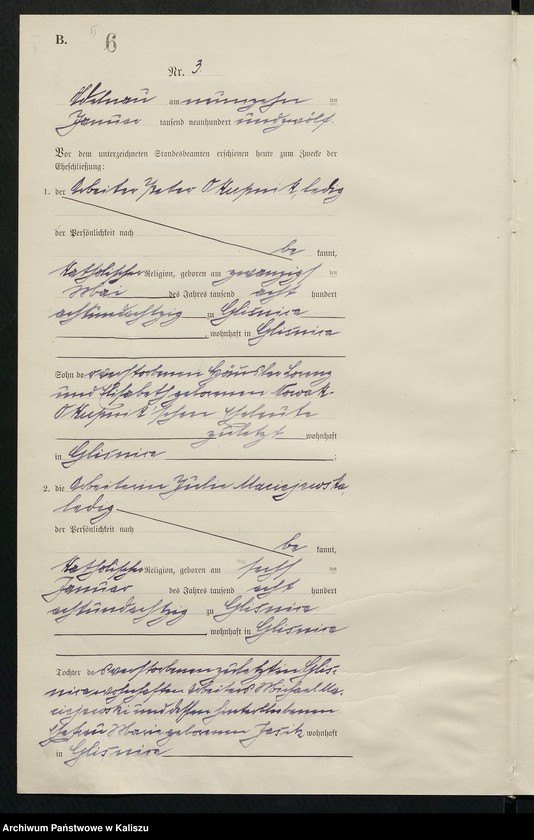 B. 6
Nr. 3.
Adelnau am neunzehn ten
Januar tausend neunhundert und zwölf.
Vor dem unterzeichneten Standesbeamten erschienen heute zum Zwecke der
Eheschließung:
1. der Arbeiter Peter Okupnik, ledig
der Persönlichkeit nach
be kannt,
katholischer Religion, geboren am zwanzigsten
Mai des Jahres tausend acht hundert
achtundachtzig zu Glisnica
, wohnhaft in Glisnica
Sohn der verstorbenen Häusler
und Elisabeth geborenen Nowak-
Okupnik'schen Eheleute
zuletzt wohnhaft
in Glisnica ;
2. die Arbeiterin Julie Maciejewska,
ledig
der Persönlichkeit nach
be kannt,
katholischer Religion, geboren am sechs ten
Januar des Jahres tausend acht hundert
achtundachtzig zu Glisnica
, wohnhaft in Glisnica
Tochter des verstorbenen zuletzt in Glis-
nica wohnhaften Arbeiters Michael Ma-
ciejewski und dessen hinterbliebenen
Ehefrau Marie geborenen Jasik wohnhaft
in Glisnica
Archiwum Państwowe w Kaliszu